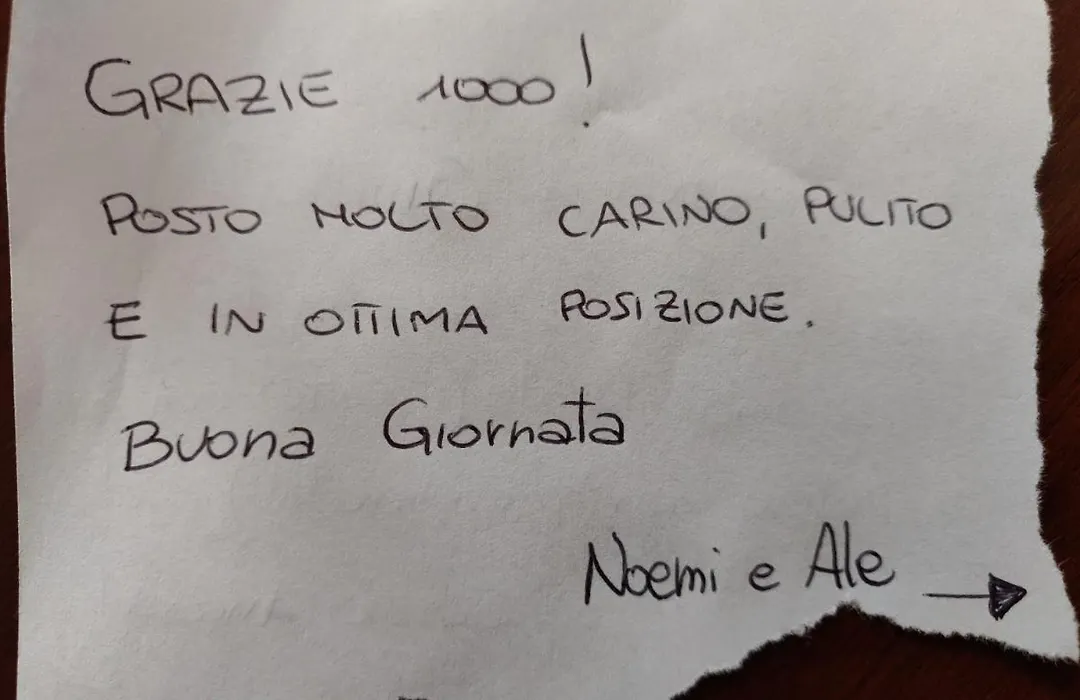 GRAZIE 1000!
POSTO MOLTO CARINO, PULITO
E IN OTTIMA POSIZIONE.
Buona Giornata
Noemi e Ale →